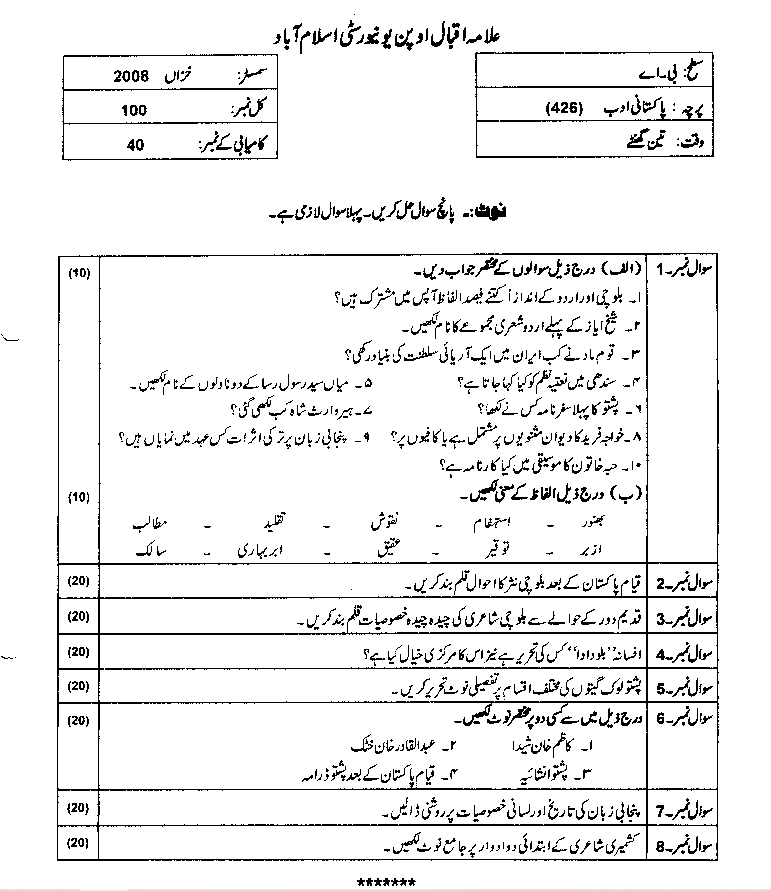 علامہ اقبال اوپن یونیورسٹی اسلام آباد
سطح: بی۔اے
پرچہ: پاکستانی ادب (426)
وقت: تین گھنٹے
سمسٹر: خزاں 2008
کل نمبر: 100
کامیابی کے نمبر: 40
نوٹ:۔ پانچ سوال حل کریں۔ پہلا سوال لازمی ہے۔
سوال نمبر۔1 (الف) درج ذیل سوالوں کے مختصر جواب دیں۔ (10)
۱۔ بلوچی اور اردو کے اندازاً کتنے فیصد الفاظ آپس میں مشترک ہیں؟
۲۔ شیخ ایاز کے پہلے اردو شعری مجموعے کا نام لکھیں۔
۳۔ قوم ماد نے کب ایران میں ایک آریائی سلطنت کی بنیاد رکھی؟
۴۔ سندھی میں نعتیہ نظم کو کیا کہا جاتا ہے؟ ۵۔ میاں سید رسول رسا کے دو ناولوں کے نام لکھیں۔
۶۔ پشتو کا پہلا سفر نامہ کس نے لکھا؟ ۷۔ ہیر وارث شاہ کب لکھی گئی؟
۸۔ خواجہ فرید کا دیوان مثنویوں پر مشتمل ہے یا کافیوں پر؟ ۹۔ پنجابی زبان پر ترکی اثرات کس عہد میں نمایاں ہیں؟
۱۰۔ حبہ خاتون کا موسیقی میں کیا کارنامہ ہے؟
(ب) درج ذیل الفاظ کے معنی لکھیں۔ (10)
بھنور ۔ استفہام ۔ نقوش ۔ تقلید ۔ مطالب
ازبر ۔ توقیر ۔ عقیق ۔ ابر بہاری ۔ سالک
سوال نمبر۔2 قیام پاکستان کے بعد بلوچی نثر کا احوال قلم بند کریں۔ (20)
سوال نمبر۔3 قدیم دور کے حوالے سے بلوچی شاعری کی چیدہ چیدہ خصوصیات قلم بند کریں۔ (20)
سوال نمبر۔4 افسانہ "بلو دادا" کس کی تحریر ہے نیز اس کا مرکزی خیال کیا ہے؟ (20)
سوال نمبر۔5 پشتو لوک گیتوں کی مختلف اقسام پر تفصیلی نوٹ تحریر کریں۔ (20)
سوال نمبر۔6 درج ذیل میں سے کسی دو پر مختصر نوٹ لکھیں۔ (20)
۱۔ کاظم خان شیدا ۲۔ عبدالقادر خان خٹک
۳۔ پشتو انشائیہ ۴۔ قیام پاکستان کے بعد پشتو ڈرامہ
سوال نمبر۔7 پنجابی زبان کی تاریخ اور لسانی خصوصیات پر روشنی ڈالیں۔ (20)
سوال نمبر۔8 کشمیری شاعری کے ابتدائی دو ادوار پر جامع نوٹ لکھیں۔ (20)
*******